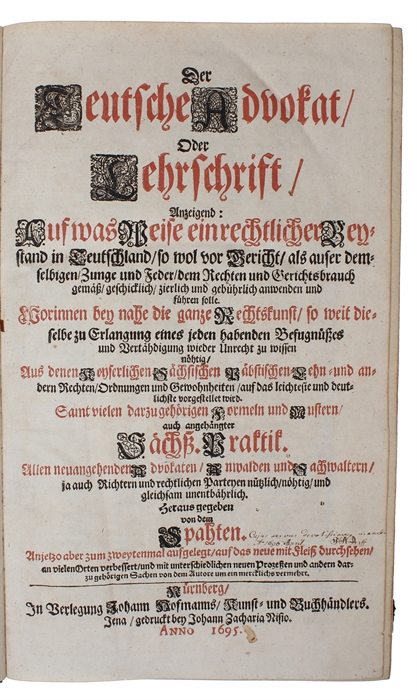 Der
Teutsche Advokat/
Oder
Lehrschrift/
Anzeigend:
Auf was Weise ein rechtlicher Bey-
stand in Teutschland/ so wol vor Gericht/ als auser dem-
selbigen/ Zunge und Feder/ dem Rechten und Gerichtsbrauch
gemäß/ geschicklich/ zierlich und gebührlich anwenden und
führen solle.
Worinnen bey nahe die ganze Rechtskunst/ so weit die-
selbe zu Erlangung eines jeden habenden Befugnüßes
und Vertähdigung wieder Unrecht zu wissen
nöhtig/
Aus denen Keyserlichen Sächsischen Päbstischen Lehn- und an-
dern Rechten/ Ordnungen und Gewohnheiten/ auf das leichteste und deut-
lichste vorgestellet wird.
Samt vielen darzu gehörigen Formeln und Mustern/
auch angehängter
Sächß. Praktik.
Allen neuangehenden Advokaten/ Anwalden und Sachwaltern/
ja auch Richtern und rechtlichen Parteyen nützlich/ nöhtig/ und
gleichsam unentbährlich.
Heraus gegeben
von dem
Spahten.
Anjetzo aber zum zweytenmal aufgelegt/ auf das neue mit Fleiß durchsehen/
an vielen Orten verbessert/ und mit unterschiedlichen neuen Prozeßen und andern dar-
zu gehörigen Sachen von dem Autore um ein merckliches vermehrt.
Nürnberg/
In Verlegung Johann Hofmanns/ Kunst- und Buchhändlers.
Jena/ gedruckt bey Johann Zacharia Nisio.
ANNO 1695.